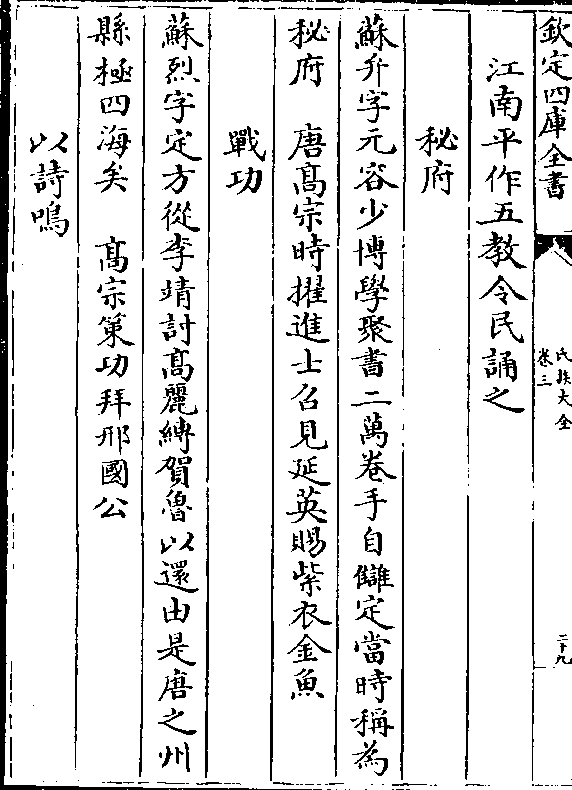 欽定四庫全書
氏族大全
卷三
二十九
江南平作五教令民誦之
秘府
蘇弁字元容少博學聚書二萬卷手自讎定當時稱為
秘府　唐髙宗時擢進士召見延英賜紫衣金魚
戰功
蘇烈字定方從李靖討髙麗縛賀魯以還由是唐之州
縣極四海矣　髙宗策功拜邢國公
以詩鳴